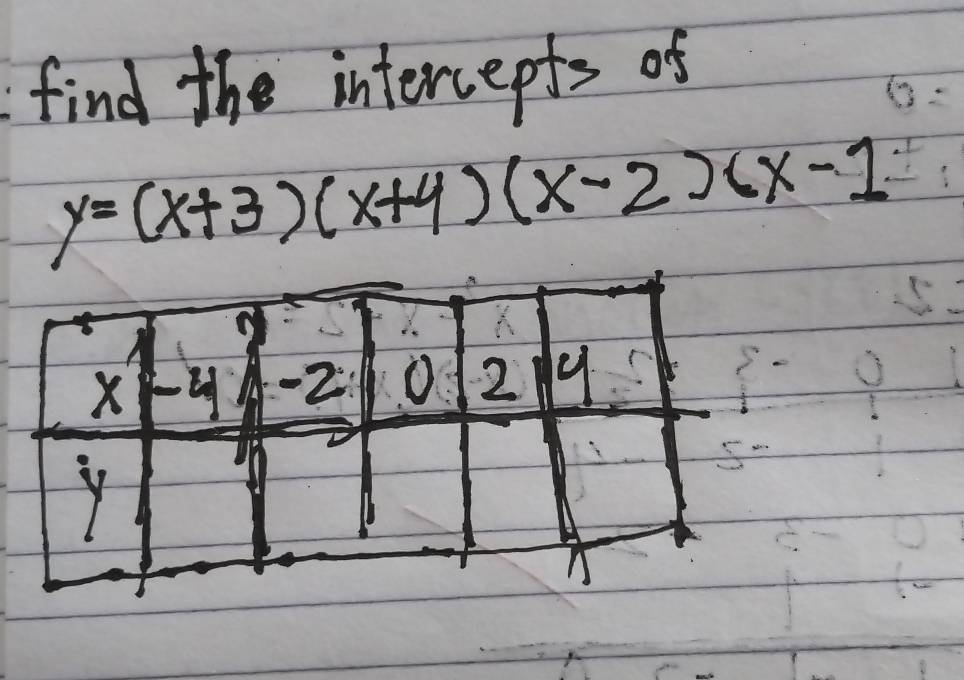 find the intercepts of
y=(x+3)(x+4)(x-2)(x-1
x -4 -2 0 2 4
y